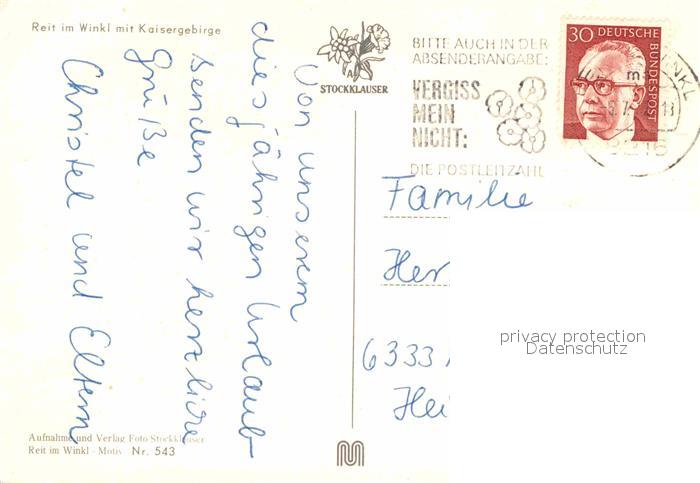 Reit im Winkl mit Kaisergebirge
STOCKKLAUSER
Von unserem
diesjährigen Urlaub
senden wir herzliche
Grüße
Christel und Eltern
Aufnahme und Verlag Foto Stockklauser
Reit im Winkl - Motiv Nr. 543
BITTE AUCH IN DER
ABSENDERANGABE:
VERGISS
MEIN
NICHT:
DIE POSTLEITZAHL
30 DEUTSCHE
BUNDESPOST
8216
Familie
Her
6333
Hei
privacy protection
Datenschutz